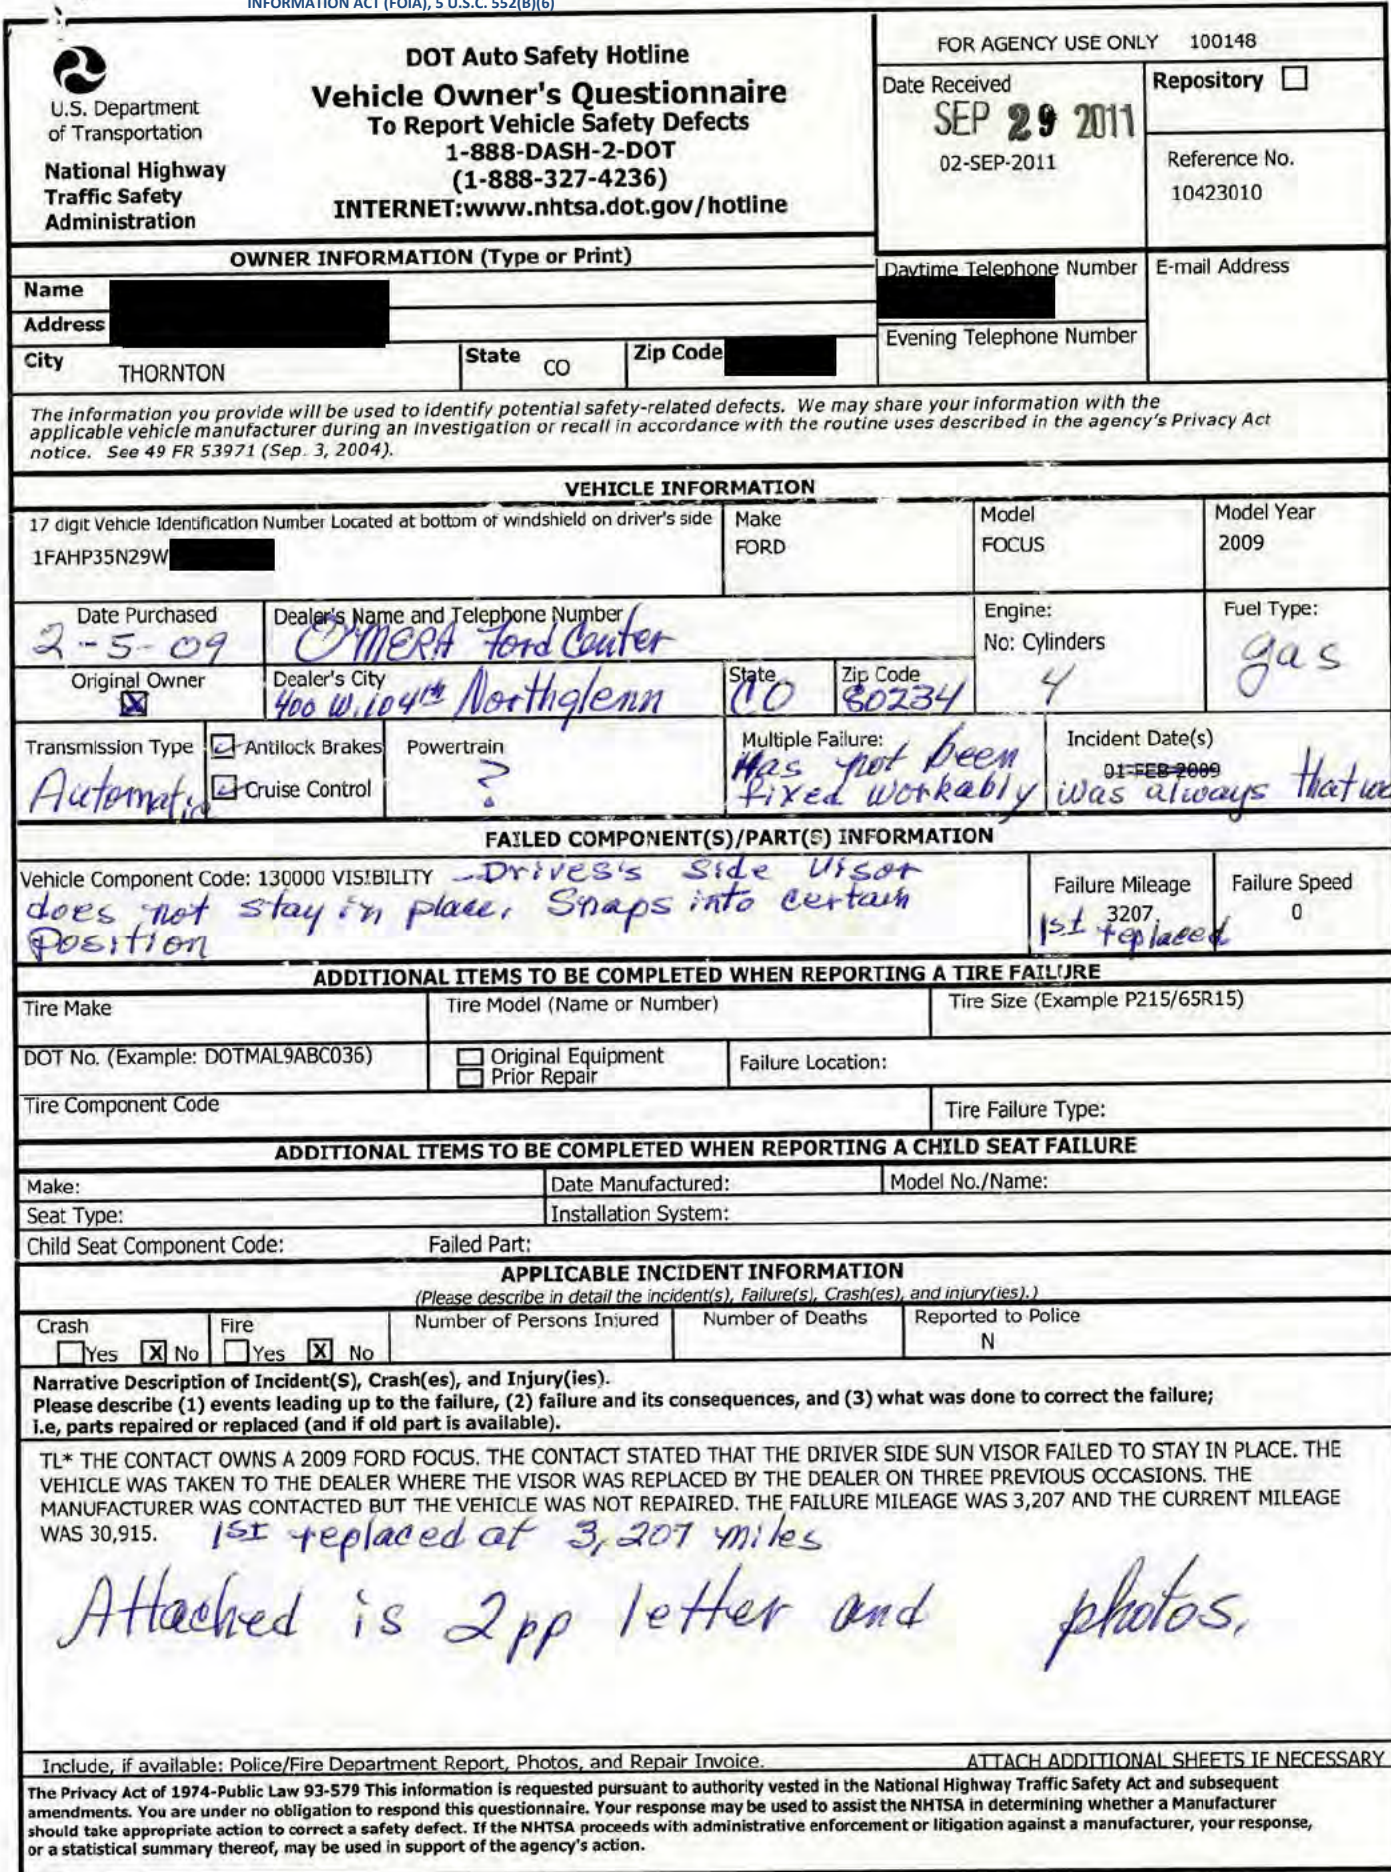 INFORMATION ACT (FOIA), 5 U.S.C. 552(B)(6)
U.S. Department
of Transportation
National Highway
Traffic Safety
Administration
DOT Auto Safety Hotline
Vehicle Owner's Questionnaire
To Report Vehicle Safety Defects
1-888-DASH-2-DOT
(1-888-327-4236)
INTERNET:www.nhtsa.dot.gov/hotline
FOR AGENCY USE ONLY 100148
Date Received
SEP 29 2011
02-SEP-2011
Repository
Reference No.
10423010
OWNER INFORMATION (Type or Print)
Name
Address
City THORNTON
State CO
Zip Code
Daytime Telephone Number
Evening Telephone Number
E-mail Address
The information you provide will be used to identify potential safety-related defects. We may share your information with the
applicable vehicle manufacturer during an investigation or recall in accordance with the routine uses described in the agency's Privacy Act
notice. See 49 FR 53971 (Sep. 3, 2004).
VEHICLE INFORMATION
17 digit Vehicle Identification Number Located at bottom of windshield on driver's side
1FAHP35N29W
Make
FORD
Model
FOCUS
Model Year
2009
Date Purchased
2-5-09
Dealer's Name and Telephone Number
O'MERA Ford Center
Engine:
No: Cylinders
4
Fuel Type:
gas
Original Owner
X
Dealer's City
400 W. 104th Northglenn
State
CO
Zip Code
80234
Transmission Type
Automatic
Antilock Brakes
Cruise Control
Powertrain
?
Multiple Failure:
Has not been
fixed workably
Incident Date(s)
01-FEB-2009
was always that wa
FAILED COMPONENT(S)/PART(S) INFORMATION
Vehicle Component Code: 130000 VISIBILITY - Drives's Side Visor
does not stay in place. Snaps into certain
Position
Failure Mileage
3207
1st replaced
Failure Speed
0
ADDITIONAL ITEMS TO BE COMPLETED WHEN REPORTING A TIRE FAILURE
Tire Make
Tire Model (Name or Number)
Tire Size (Example P215/65R15)
DOT No. (Example: DOTMAL9ABC036)
Original Equipment
Prior Repair
Failure Location:
Tire Component Code
Tire Failure Type:
ADDITIONAL ITEMS TO BE COMPLETED WHEN REPORTING A CHILD SEAT FAILURE
Make:
Date Manufactured:
Model No./Name:
Seat Type:
Installation System:
Child Seat Component Code:
Failed Part:
APPLICABLE INCIDENT INFORMATION
(Please describe in detail the incident(s), Failure(s), Crash(es), and injury(ies).)
Crash
Yes X No
Fire
Yes X No
Number of Persons Injured
Number of Deaths
Reported to Police
N
Narrative Description of Incident(S), Crash(es), and Injury(ies).
Please describe (1) events leading up to the failure, (2) failure and its consequences, and (3) what was done to correct the failure;
i.e, parts repaired or replaced (and if old part is available).
TL* THE CONTACT OWNS A 2009 FORD FOCUS. THE CONTACT STATED THAT THE DRIVER SIDE SUN VISOR FAILED TO STAY IN PLACE. THE
VEHICLE WAS TAKEN TO THE DEALER WHERE THE VISOR WAS REPLACED BY THE DEALER ON THREE PREVIOUS OCCASIONS. THE
MANUFACTURER WAS CONTACTED BUT THE VEHICLE WAS NOT REPAIRED. THE FAILURE MILEAGE WAS 3,207 AND THE CURRENT MILEAGE
WAS 30,915. 1st replaced at 3,207 miles
Attached is 2pp letter and photos.
Include, if available: Police/Fire Department Report, Photos, and Repair Invoice.
ATTACH ADDITIONAL SHEETS IF NECESSARY
The Privacy Act of 1974-Public Law 93-579 This information is requested pursuant to authority vested in the National Highway Traffic Safety Act and subsequent
amendments. You are under no obligation to respond this questionnaire. Your response may be used to assist the NHTSA in determining whether a Manufacturer
should take appropriate action to correct a safety defect. If the NHTSA proceeds with administrative enforcement or litigation against a manufacturer, your response,
or a statistical summary thereof, may be used in support of the agency's action.